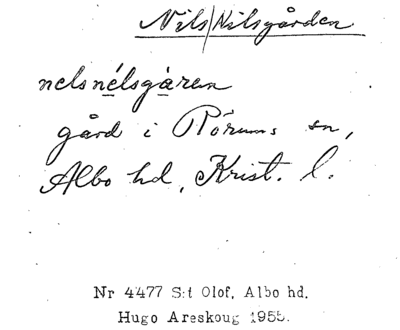 Nils/Nilsgården
nelsnélsgàren
gård i Rörums sn,
Albo hd, Krist. l.
Nr 4477 S:t Olof, Albo hd.
Hugo Areskoug 1955.